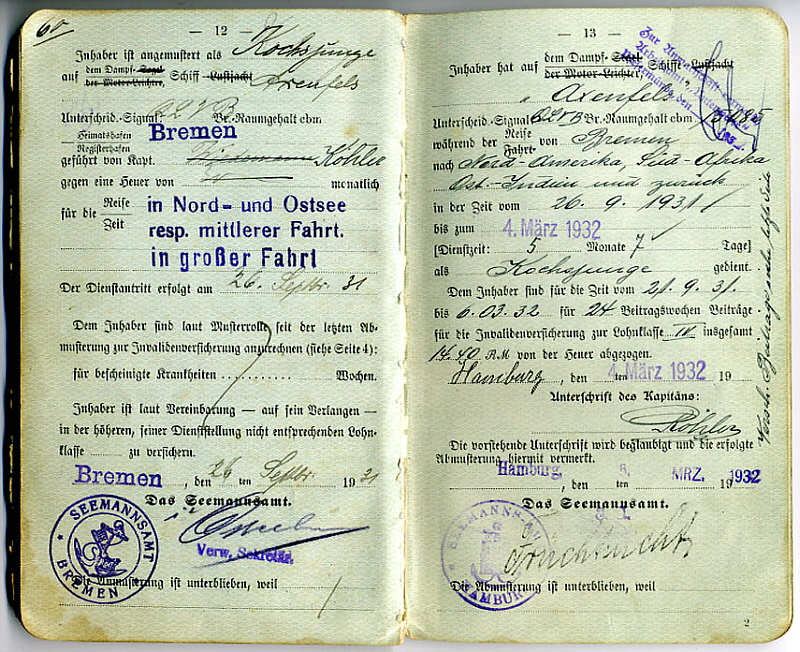 60
— 12 —
Inhaber ist angemustert als Kochsjunge
auf dem Dampf- Segel Schiff Lustjacht Arenfels
der Motor-Leichter,
Unterscheid.-Signal QLVB Br.-Raumgehalt cbm
Heimatshafen Bremen
Registerhafen
geführt von Kapt. Köhler
gegen eine Heuer von monatlich
für die Reise in Nord- und Ostsee
Zeit resp. mittlerer Fahrt.
in großer Fahrt
Der Dienstantritt erfolgt am 26. Septbr. 31
Dem Inhaber sind laut Musterrolle seit der letzten Ab-
musterung zur Invalidenversicherung anzurechnen (siehe Seite 4):
für bescheinigte Krankheiten .......... Wochen.
Inhaber ist laut Vereinbarung — auf sein Verlangen —
in der höheren, seiner Dienststellung nicht entsprechenden Lohn-
klasse zu versichern.
Bremen, den 26 ten Septbr. 1931
Das Seemannsamt.
Verw. Sekretär.
SEEMANNSAMT BREMEN
Die Anmusterung ist unterblieben, weil
— 13 —
Inhaber hat auf dem Dampf- Segel Schiff Lustjacht
der Motor-Leichter,
Arenfels
Unterscheid.-Signal QLVB Br.-Raumgehalt cbm 15085
während der Reise von Bremen
Fahrt
nach Nord-Amerika, Süd-Afrika
Ost-Indien und zurück
in der Zeit vom 26. 9. 1931
bis zum 4. März 1932
[Dienstzeit: 5 Monate 7 Tage]
als Kochsjunge gedient.
Dem Inhaber sind für die Zeit vom 21. 9. 31.
bis 6.03.32 für 24 Beitragswochen Beiträge
für die Invalidenversicherung zur Lohnklasse IV insgesamt
14.40 RM von der Heuer abgezogen.
Hamburg, den 4. März 1932 ten 19
Unterschrift des Kapitäns:
Köhler
Die vorstehende Unterschrift wird beglaubigt und die erfolgte
Abmusterung hiermit vermerkt.
Hamburg, den 6. ten MRZ. 1932
Das Seemannsamt.
SEEMANNSAMT HAMBURG
Die Abmusterung ist unterblieben, weil
2